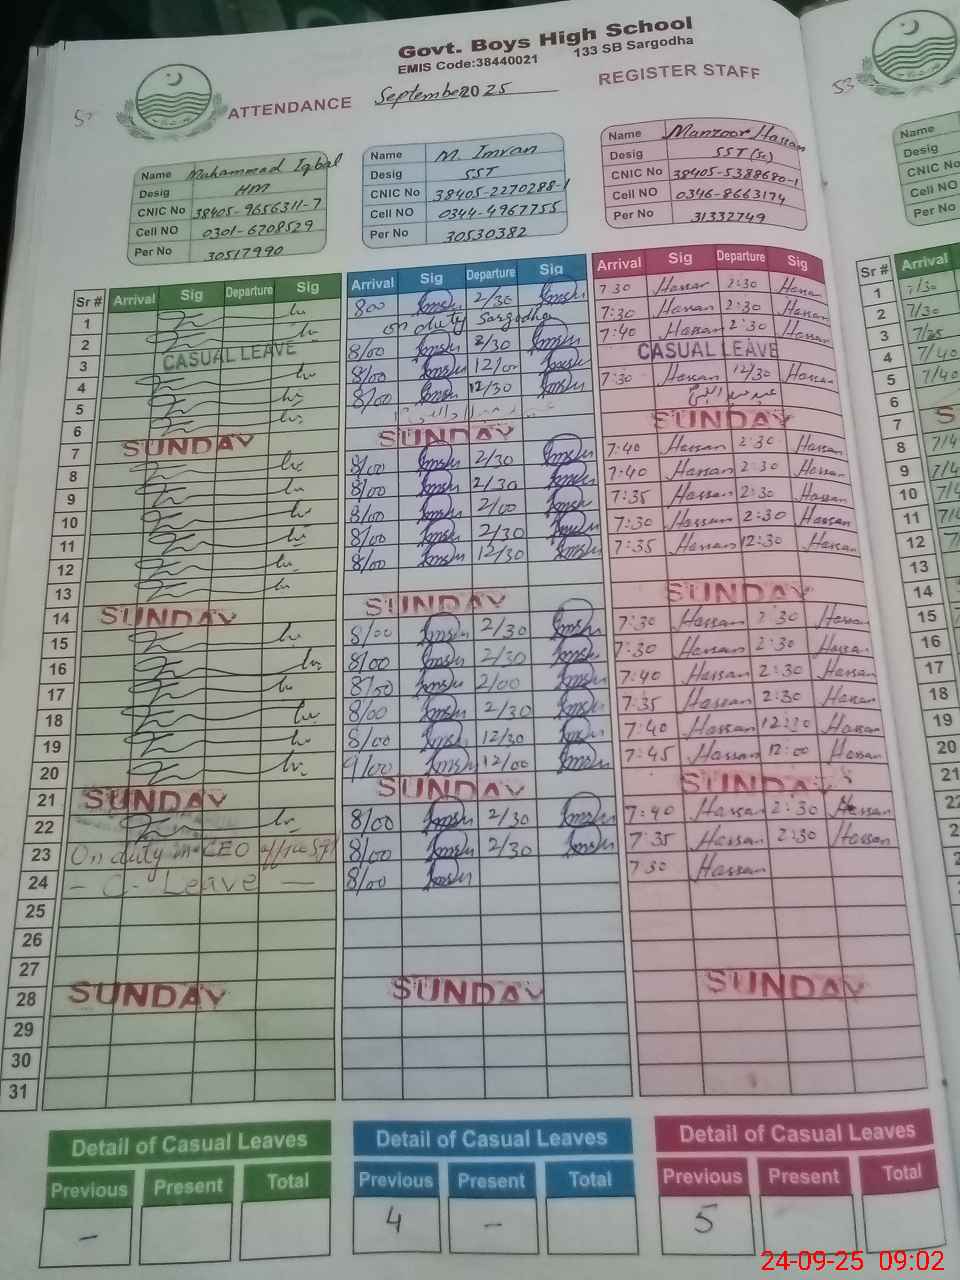 Govt. Boys High School
EMIS Code:38440021 133 SB Sargodha
ATTENDANCE September 2025 REGISTER STAFF
53
Name Muhammad Iqbal
Desig HM
CNIC No 38405-9656311-7
Cell NO 0301-6708529
Per No 30517990
Name M. Imran
Desig SST
CNIC No 38405-2270288-1
Cell NO 0344-4967755
Per No 30530382
Name Manzoor Hassan
Desig SST (Sc)
CNIC No 38405-5388680-1
Cell NO 0346-8663174
Per No 31332749
Name
Desig
CNIC No
Cell NO
Per No
Sr # Arrival Sig Departure Sig Arrival Sig Departure Sig Arrival Sig Departure Sig Sr # Arrival
1 800 2/30 7 30 Hassan 2:30 Hassan 1 7/30
2 on duty Sargodha 7:30 Hassan 2:30 Hassan 2 7/30
3 CASUAL LEAVE 8/00 2/30 7:40 Hassan 2:30 Hassan 3 7/35
4 8/00 12/00 CASUAL LEAVE 4 7/40
5 8/00 12/30 7:30 Hassan 12/30 Hassan 5 7/40
6 6
7 SUNDAY SUNDAY SUNDAY 7
8 8/00 2/30 7:40 Hassan 2:30 Hassan 8
9 8/00 2/30 7:40 Hassan 2:30 Hassan 9
10 8/00 2/00 7:35 Hassan 2:30 Hassan 10
11 8/00 2/30 7:30 Hassan 2:30 Hassan 11
12 8/00 12/30 7:35 Hassan 12:30 Hassan 12
13 13
14 SUNDAY SUNDAY SUNDAY 14
15 8/00 2/30 7:30 Hassan 2:30 Hassan 15
16 8/00 2/30 7:30 Hassan 2:30 Hassan 16
17 8/00 2/00 7:40 Hassan 2:30 Hassan 17
18 8/00 2/30 7:35 Hassan 2:30 Hassan 18
19 8/00 12/30 7:40 Hassan Hassan 19
20 9/00 12/00 7:45 Hassan 12:00 Hassan 20
21 SUNDAY SUNDAY SUNDAY 21
22 8/00 2/30 7:40 Hassan 2:30 Hassan 22
23 On duty in CEO office 8/00 2/30 7:35 Hassan 2:30 Hassan 23
24 - C- Leave - 8/00 7 30 Hassan 24
25 25
26 26
27 27
28 SUNDAY SUNDAY SUNDAY 28
29 29
30 30
31 31
Detail of Casual Leaves Detail of Casual Leaves Detail of Casual Leaves
Previous Present Total Previous Present Total Previous Present Total
- 4 - 5
24-09-25 09:02